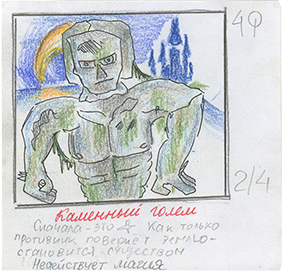 4
Каменный голем
Сначала - это 0/4. Как только
противник повернёт землю-
становится существом
Не действует магия
2/4